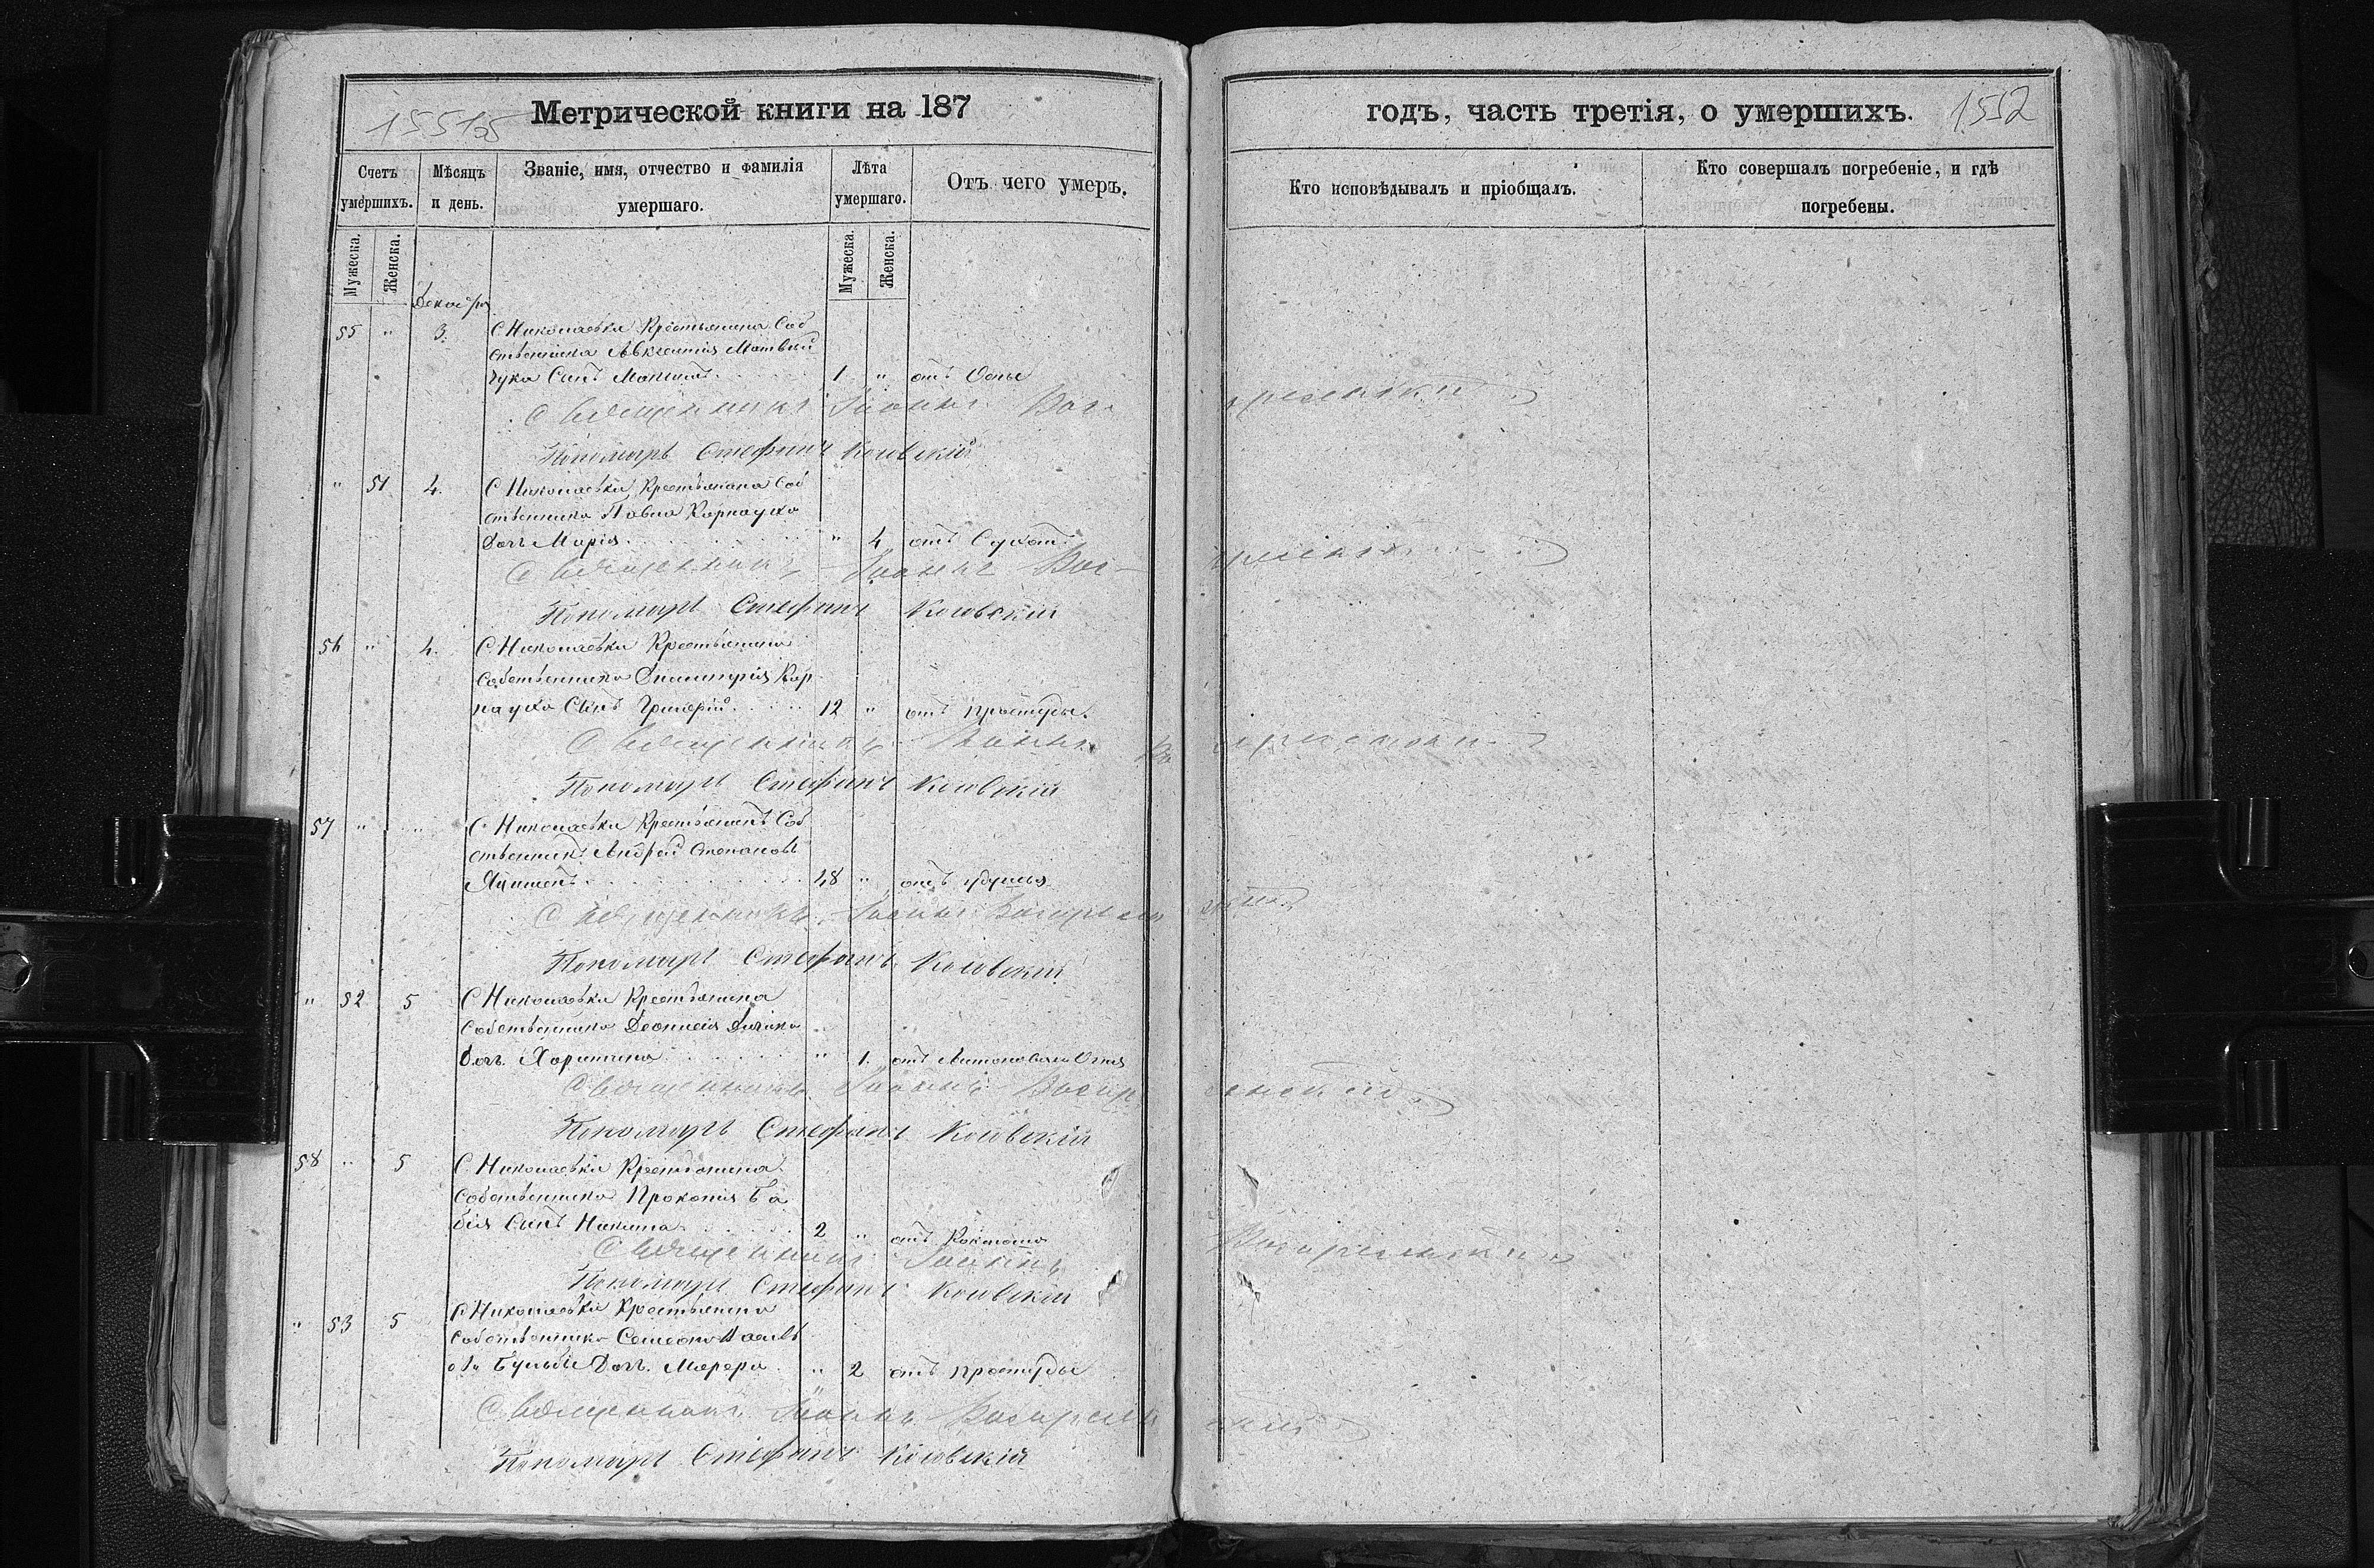 155125
Метрической книги на 187
годъ, часть третія, о умершихъ.
1552
Счетъ умершихъ.
Мѣсяцъ и день.
Званіе, имя, отчество и фамилія умершаго.
Лѣта умершаго.
Отъ чего умеръ.
Кто исповѣдывалъ и пріобщалъ.
Кто совершалъ погребеніе, и гдѣ погребены.
Мужеска.
Женска.
Мужеска.
Женска.
Декабря
55 " 3. С Николаевки Крестьянина Соб
ственника Авксентія Матвій
чука Сынъ Максимъ 1 " отъ Оспы
Священникъ Іоаннъ Воскресенскій
Пономарь Стефанъ Косовскій
" 51 4. С Николаевки Крестьянина Соб
ственника Павла Карнауха
Дочь Марія 4 отъ Сухотъ
Священникъ Іоаннъ Воскресенскій
Пономарь Стефанъ Косовскій
56 " 4. С Николаевки Крестьянина
Собственника Димитрія Кар
науха Сынъ Григорій 12 " отъ простуды.
Священникъ Іоаннъ Воскресенскій
Пономарь Стефанъ Косовскій
57 " " С Николаевки Крестьянинъ Соб
ственникъ Андрей Степановъ
48 " отъ
Священникъ Іоаннъ Воскресенскій
Пономарь Стефанъ Косовскій
" 52 5 С Николаевки Крестьянина
Собственника Діонисія
Дочь Харитина " 1. отъ Антоновага Огня
Священникъ Іоаннъ Воскресенскій
Пономарь Стефанъ Косовскій
58 " 5 С Николаевки Крестьянина
Собственника Прокопія Ба
бія Сынъ Никита 2 " отъ Коклюша
Священникъ Іоаннъ Воскресенскій
Пономарь Стефанъ Косовскій
" 53 5 С Николаевки Крестьянина
Собственника Семеона
Дочь " 2 отъ простуды
Священникъ Іоаннъ Воскресенскій
Пономарь Стефанъ Косовскій